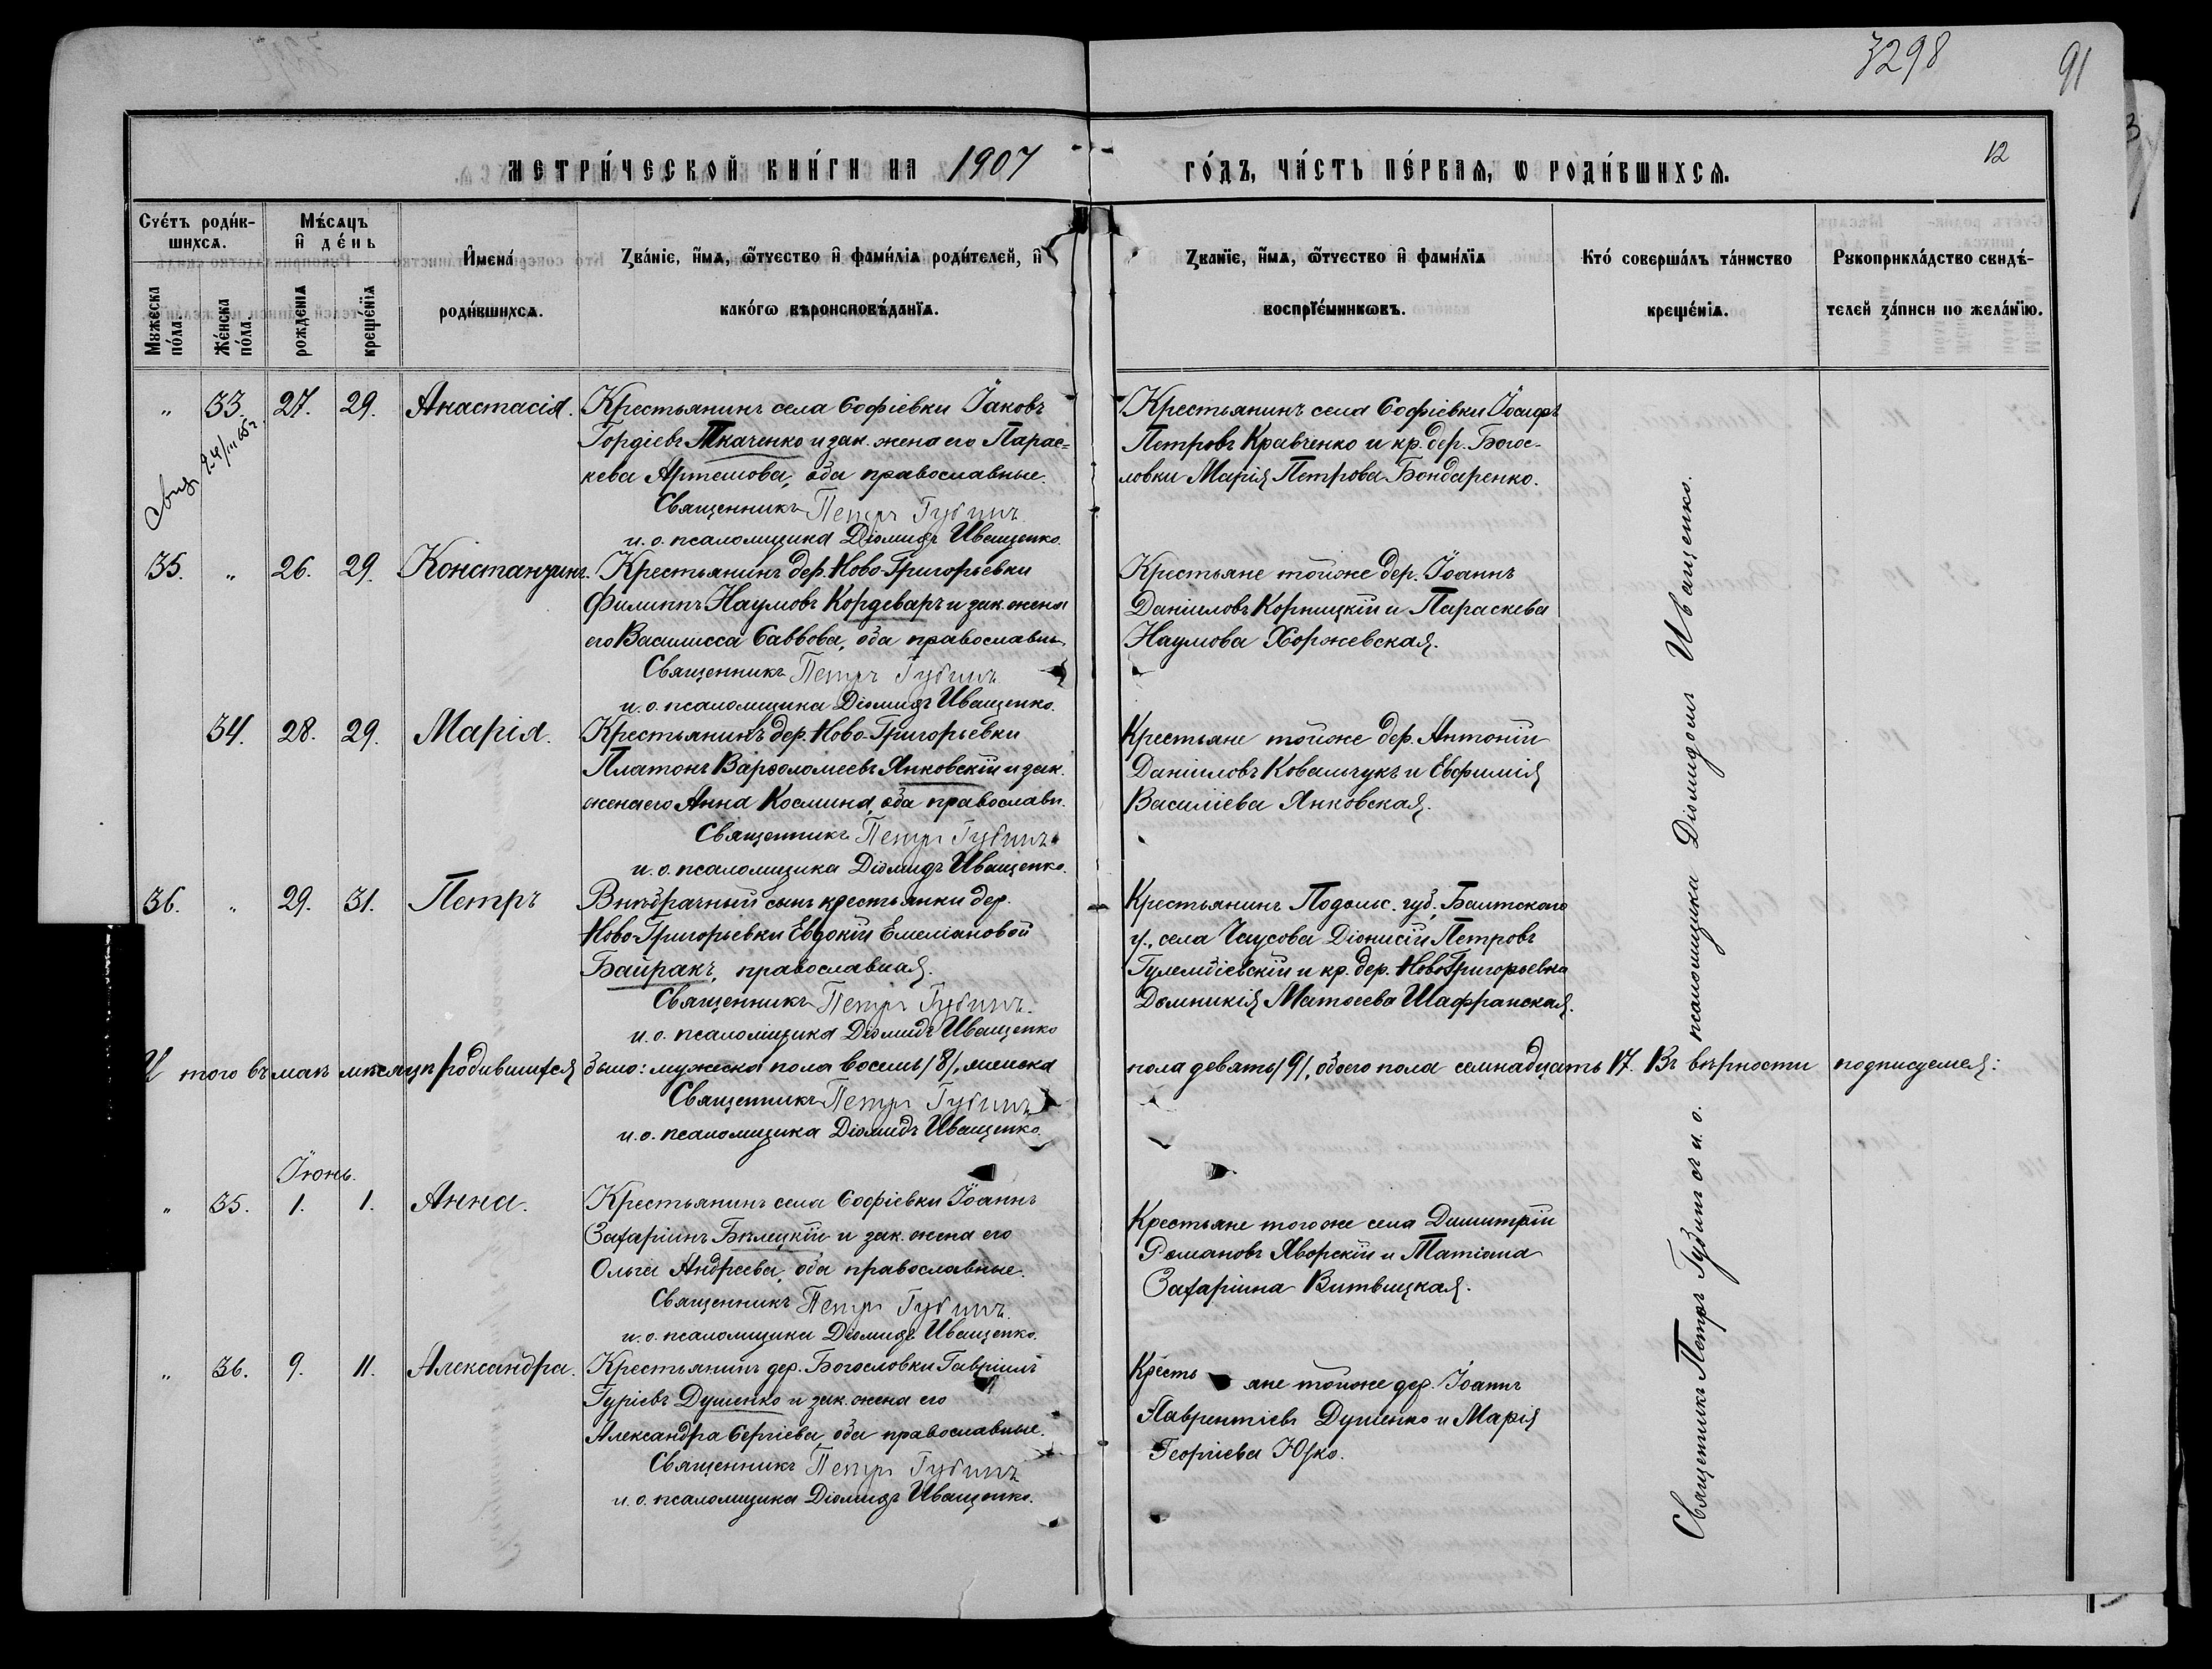 3298
91
12
МЕТРИ́ЧЕСКОЙ КНИ́ГИ НА 1907 ГО́ДЪ, ЧА́СТЬ ПЕ́РВАѦ, Ѡ РОДИ́ВШИХСѦ.
Сче́тъ роди́в-
шихсѧ.
Мꙋжеска по́ла.
Же́нска по́ла.
Мѣ́сѧцъ
и҆ де́нь
рожденїѧ
креще́нїѧ
И҆мена́
роди́вшихсѧ.
Зва́нїе, и҆́мѧ, ѻ҆́тчество и҆ фами́лїѧ роди́телей, и҆
како́гѡ вѣроисповѣ́данїѧ.
Зва́нїе, и҆́мѧ, ѻ҆́тчество и҆ фами́лїѧ
воспрїе́мникѡвъ.
Кто́ соверша́лъ та́инство
креще́нїѧ.
Рꙋкоприкла́дство свидѣ́-
телей за́писи по жела́нїю.
„ 33. 27. 29. Анастасія.
Крестьянинъ села Софіевки Іаковъ
Гордіевъ Ткаченко и зак. жена его Парас=
кева Артемова, оба православные.
Священникъ Петръ Губинъ
и. о. псаломщика Діомидъ Иващенко.
Крестьянинъ села Софіевки Іосифъ
Петровъ Кравченко и кр. дер. Богос-
ловки Марія Петрова Бондаренко.
35. „ 26. 29. Константинъ.
Крестьянинъ дер. Ново-Григорьевки
Филиппъ Наумовъ Кордеваръ и зак. жена
его Василисса Саввова, оба православны
Священникъ Петръ Губинъ
и. о. псаломщика Діомидъ Иващенко.
Крестьяне тойже дер. Іоаннъ
Данііловъ Корницкій и Параскева
Наумова Хоржевская.
34. 28. 29. Марія.
Крестьянинъ дер. Ново-Григорьевки
Платонъ Варѳоломеевъ Янковскій и зак.
жена его Анна Космина, оба православн.
Священникъ Петръ Губинъ
и. о. псаломщика Діомидъ Иващенко.
Крестьяне тойже дер. Антоній
Данііловъ Ковальчукъ и Евфимія
Василіева Янковская.
36. „ 29. 31. Петръ
Внѣбрачный сынъ крестьянки дер.
Ново-Григорьевки Евдокіи Емеліановой
Байракъ, православная.
Священникъ Петръ Губинъ.
и. о. псаломщика Діомидъ Иващенко
Крестьянинъ Подольс. губ. Балтскаго
у., села Чаусова Діонисій Петровъ
и кр. дер. Ново-Григорьевки
Домникія Матѳеева Шафранская.
И того въ маѣ мѣсяцѣ родившихся было: мужеска пола восемь /8/, женска пола девять /9/, обоего пола семнадцать 17. Въ вѣрности подписуемся:
Священникъ Петръ Губинъ
и. о. псаломщика Діомидъ Иващенко.
Іюнь.
„ 35. 1. 1. Анна.
Крестьянинъ села Софіевки Іоаннъ
Захаріинъ Бѣлецкій и зак. жена его
Ольга Андреева, оба православные.
Священникъ Петръ Губинъ.
и. о. псаломщика Діомидъ Иващенко.
Крестьяне тогоже села Димитрій
Романовъ Яворскій и Татіана
Захаріина Витвицкая.
„ 36. 9. 11. Александра.
Крестьянинъ дер. Богословки Гавріилъ
Гуріевъ Душенко и зак. жена его
Александра Сергіева, оба православные.
Священникъ Петръ Губинъ
и. о. псаломщика Діомидъ Иващенко.
Кресть яне тойже дер. Іоаннъ
Лаврентіевъ Душенко и Марія
Георгіева
Священникъ Петръ Губинъ и и. о. псаломщика Діомидомъ Иващенко.